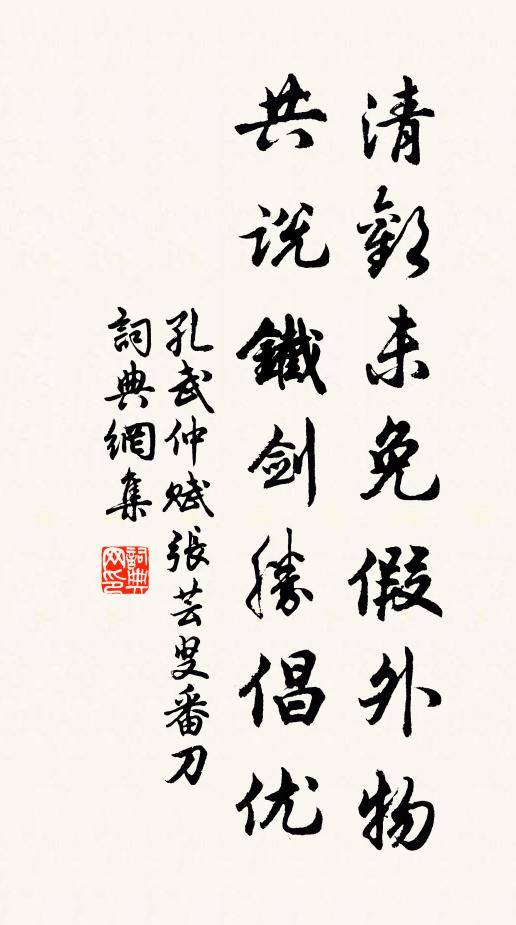 清歡未免假外物
共説鐵劍勝倡优
孔武仲賦張芸叟番刀
詞典網集
詞典网印